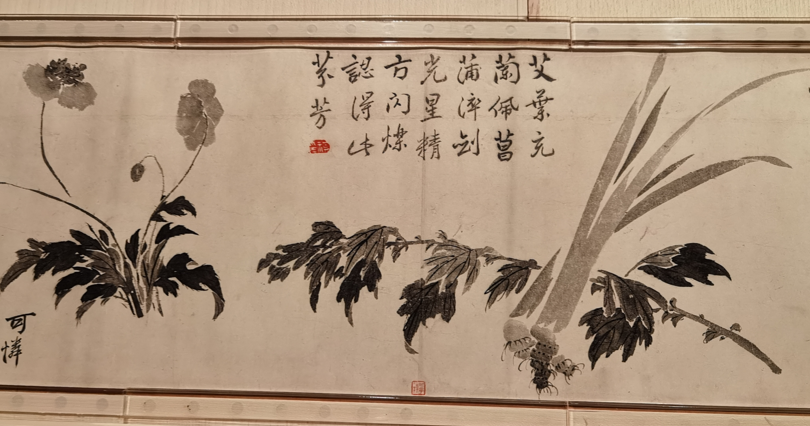 艾葉充
蘭佩菖
蒲淬劍
光星精
方閃爍
認得此
芬芳
可憐